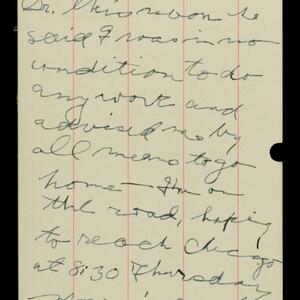 Dr.
said I was in no
condition to do
any work and
advised me by
all means to go
home — I'm on
the road, hoping
to reach Chicago
at 8:30 Thursday